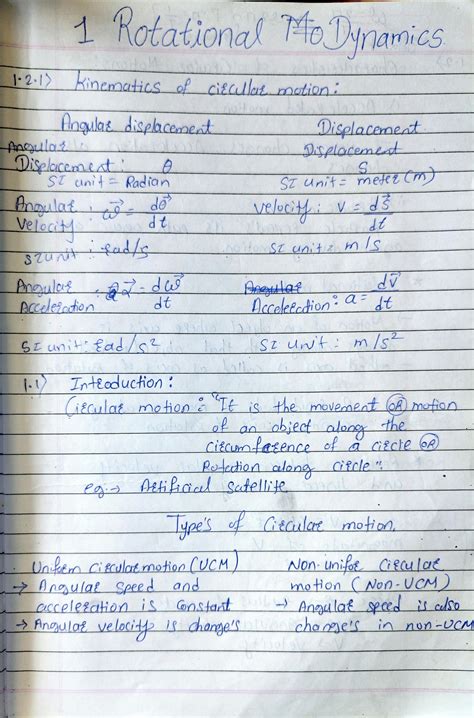 1 Rotational Mo Dynamics
1.2.1) Kinematics of circular motion:
Angular displacement Displacement
Angular Displacement
Displacement: θ S
SI unit = Radian SI unit = meter (m)
Angular : ω⃗ = dθ⃗ velocity: v = ds⃗
velocity dt dt
SI unit : rad/s SI unit: m/s
Angular = α⃗ = dω⃗ Angular dv⃗
Acceleration dt Acceleration: a = dt
SI unit: rad/s² SI unit: m/s²
1.1) Introduction:
Circular motion: "It is the movement OR motion
of an object along the
circumference of a circle OR
Rotection along circle".
eg:→ Artificial satellite
Type's of Circular motion.
Uniform Circular motion (UCM) Non-unifor Circular
→ Angular speed and motion (Non-UCM)
acceleration is constant → Angular speed is also
→ Angular velocity is change's change's in non-UCM